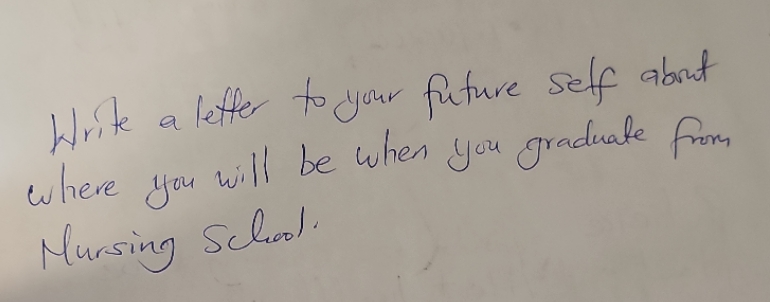 Write a letter to your future self about
where you will be when you graduate from
Nursing School.